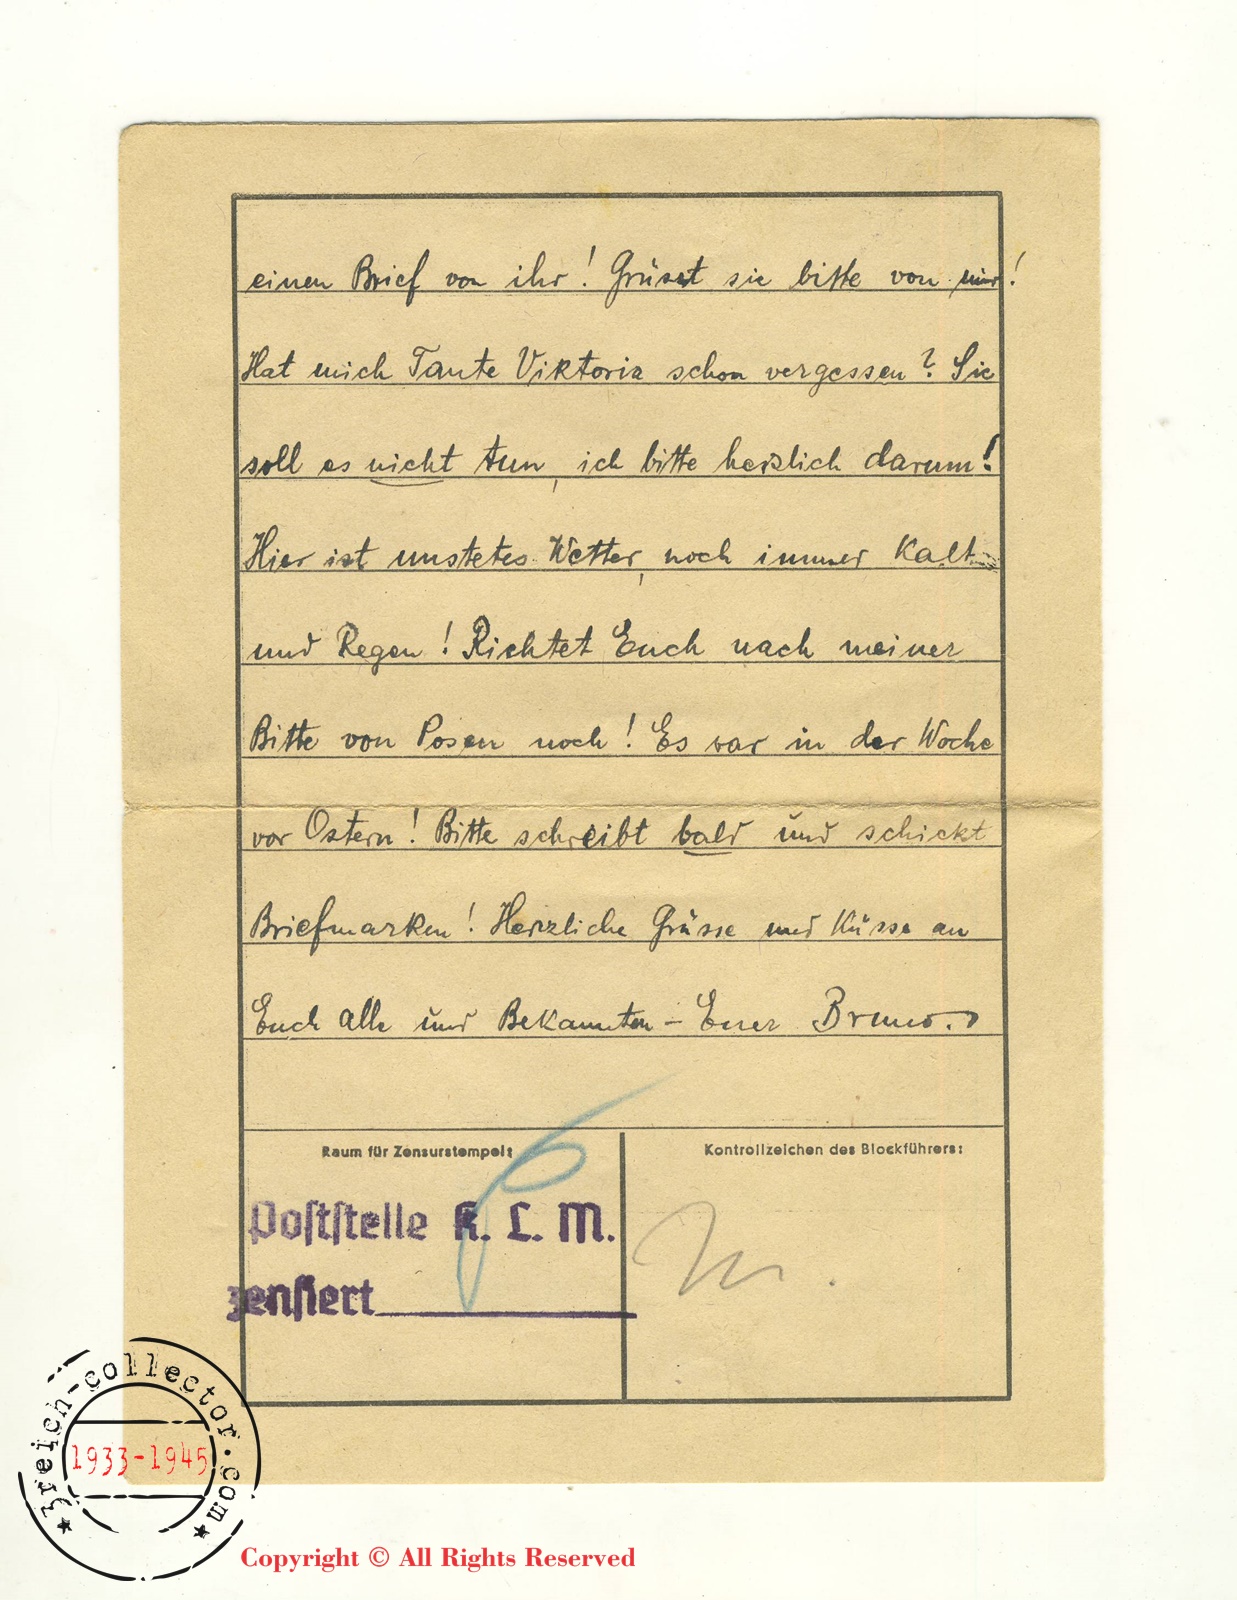 einen Brief von ihr! Grüsst sie bitte von mir!
Hat mich Tante Viktoria schon vergessen? Sie
soll es nicht tun, ich bitte herzlich darum!
Hier ist unstetes Wetter, noch immer Kalt
und Regen! Richtet Euch nach meiner
Bitte von Posen noch! Es war in der Woche
vor Ostern! Bitte schreibt bald und schickt
Briefmarken! Herzliche Grüsse und Küsse an
Euch alle und Bekannten – Euer Bruno.
Raum für Zensurstempel:
Kontrollzeichen des Blockführers:
Poststelle K. L. M.
zensiert
3reich-collector.com
1933-1945
Copyright © All Rights Reserved